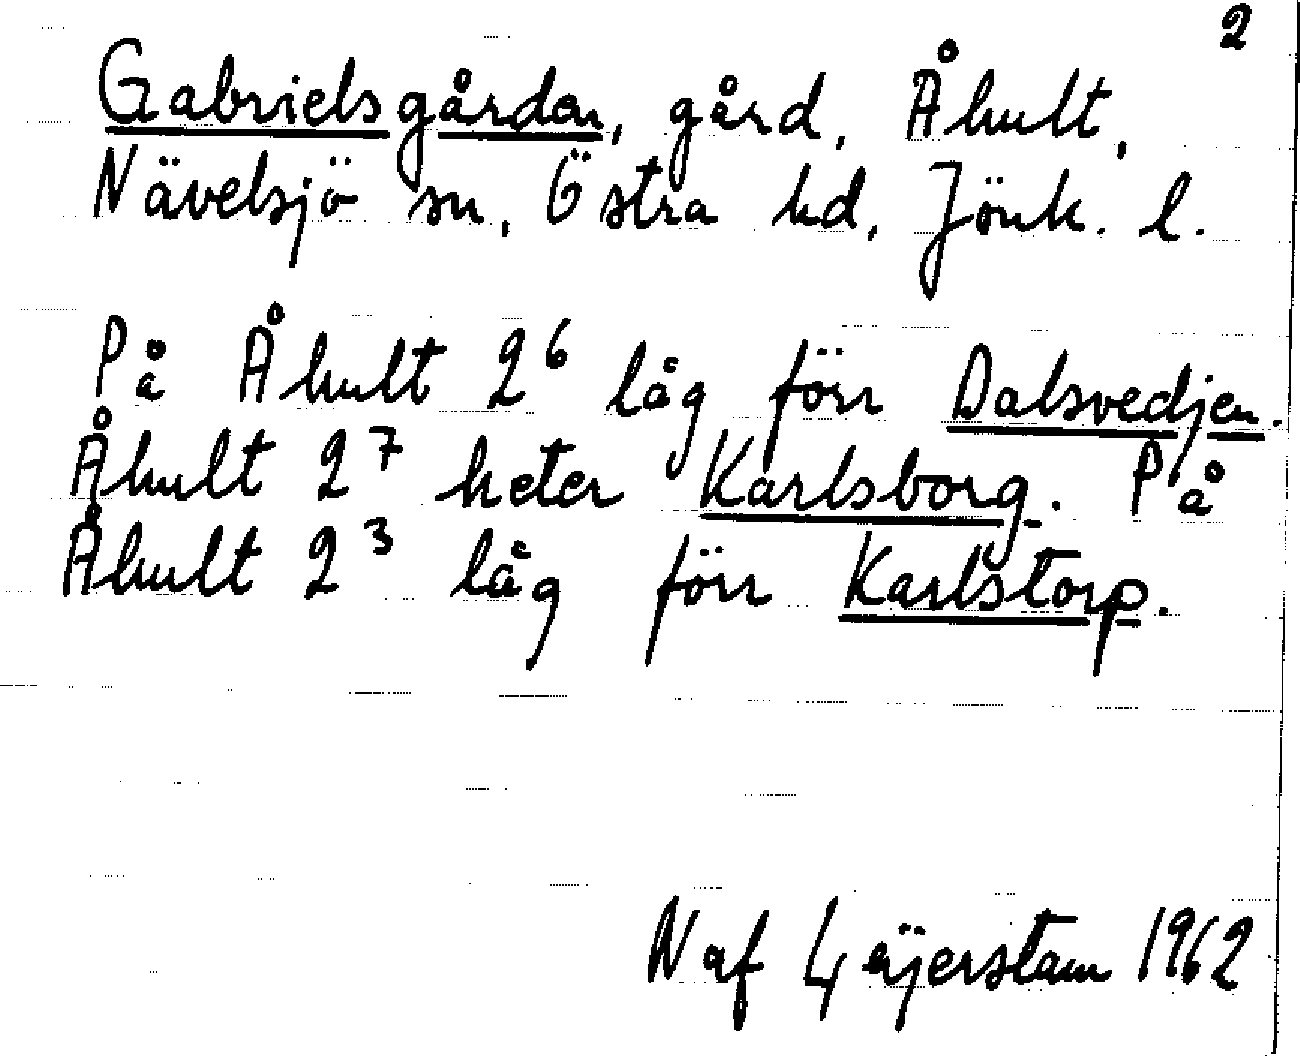 2
Gabrielsgården, gård, Åhult,
Nävelsjö sn, Östra hd, Jönk. l.
På Åhult 2⁶ låg förr Dalsvedjen.
Åhult 2⁷ heter Karlsborg. På
Åhult 2³ låg förr Karlstorp.
N af Geijerstam 1962